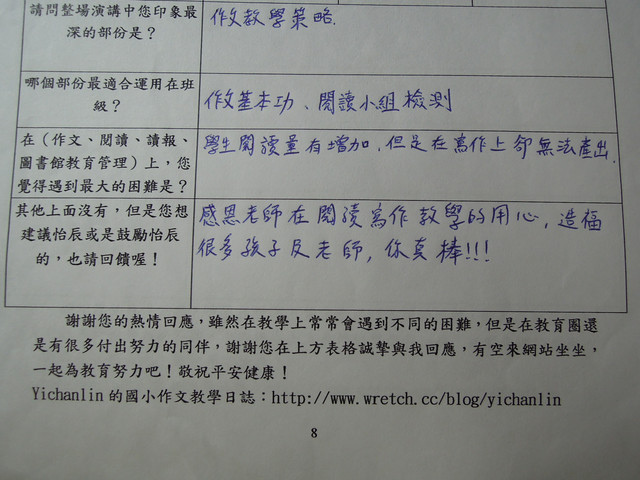 請問整場演講中您印象最
深的部份是？
作文教學策略.
哪個部份最適合運用在班
級？
作文基本功、閱讀小組檢測
在（作文、閱讀、讀報、
圖書館教育管理）上，您
覺得遇到最大的困難是？
學生閱讀量有增加，但是在寫作上卻無法產出.
其他上面沒有，但是您想
建議怡辰或是鼓勵怡辰
的，也請回饋喔！
感恩老師在閱讀寫作教學的用心，造福
很多孩子及老師，你真棒!!!
謝謝您的熱情回應，雖然在教學上常常會遇到不同的困難，但是在教育圈還
是有很多付出努力的同伴，謝謝您在上方表格誠摯與我回應，有空來網站坐坐，
一起為教育努力吧！敬祝平安健康！
Yichanlin 的國小作文教學日誌：http://www.wretch.cc/blog/yichanlin
8